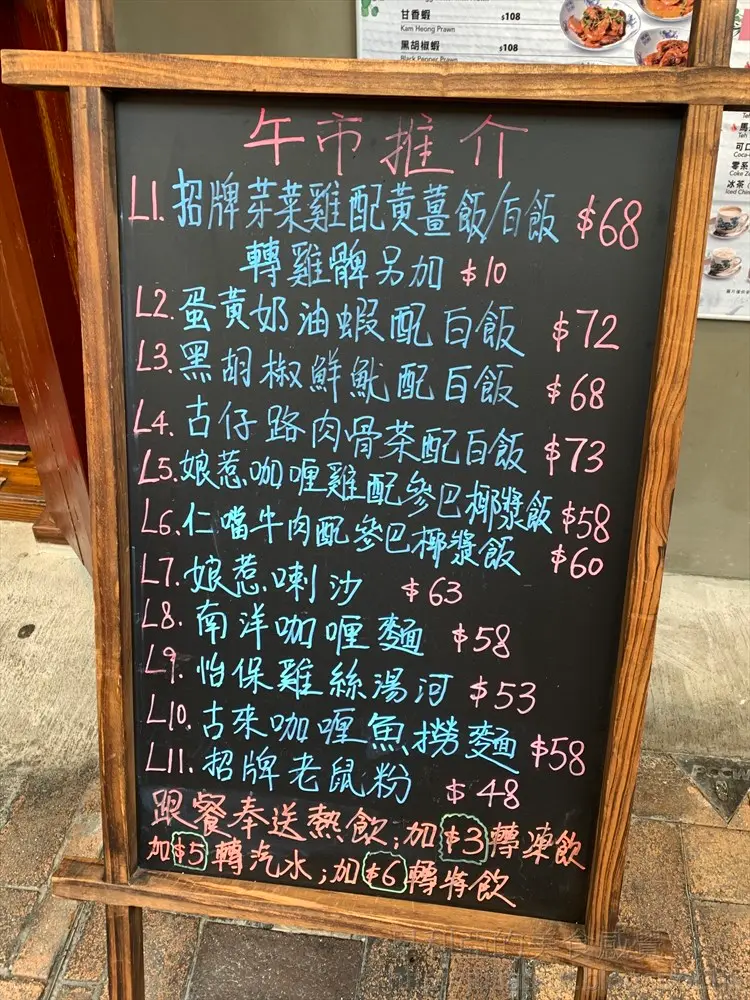 甘香蝦 $108
Kam Heong Prawn
黑胡椒蝦 $108
Black Pepper Prawn
午市推介
L1. 招牌芽菜雞配黃薑飯/白飯 $68
轉雞髀另加 $10
L2. 蛋黃奶油蝦配白飯 $72
L3. 黑胡椒鮮魷配白飯 $68
L4. 古仔路肉骨茶配白飯 $73
L5. 娘惹咖喱雞配參巴椰漿飯 $58
L6. 仁噹牛肉配參巴椰漿飯 $60
L7. 娘惹喇沙 $63
L8. 南洋咖喱麵 $58
L9. 怡保雞絲湯河 $53
L10. 古來咖喱魚撈麵 $58
L11. 招牌老鼠粉 $48
跟餐奉送熱飲;加$3轉凍飲
加$5轉汽水;加$6轉特飲